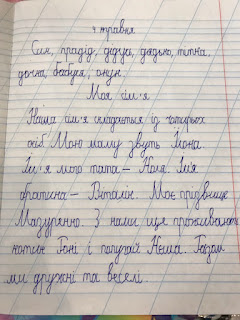 4 травня
Син, прадід, дідусь, дядько, тітка,
дочка, бабуся, онук.
Моя сім'я
Наша сім'я складається із чотирьох
осіб. Мою маму звуть Ілона.
Ім'я мого тата – Коля. Ім'я
братика – Віталік. Моє прізвище
Мазуренко. З нами ще проживають
котик Гоні і папуга Кеша. Разом
ми дружні та веселі.